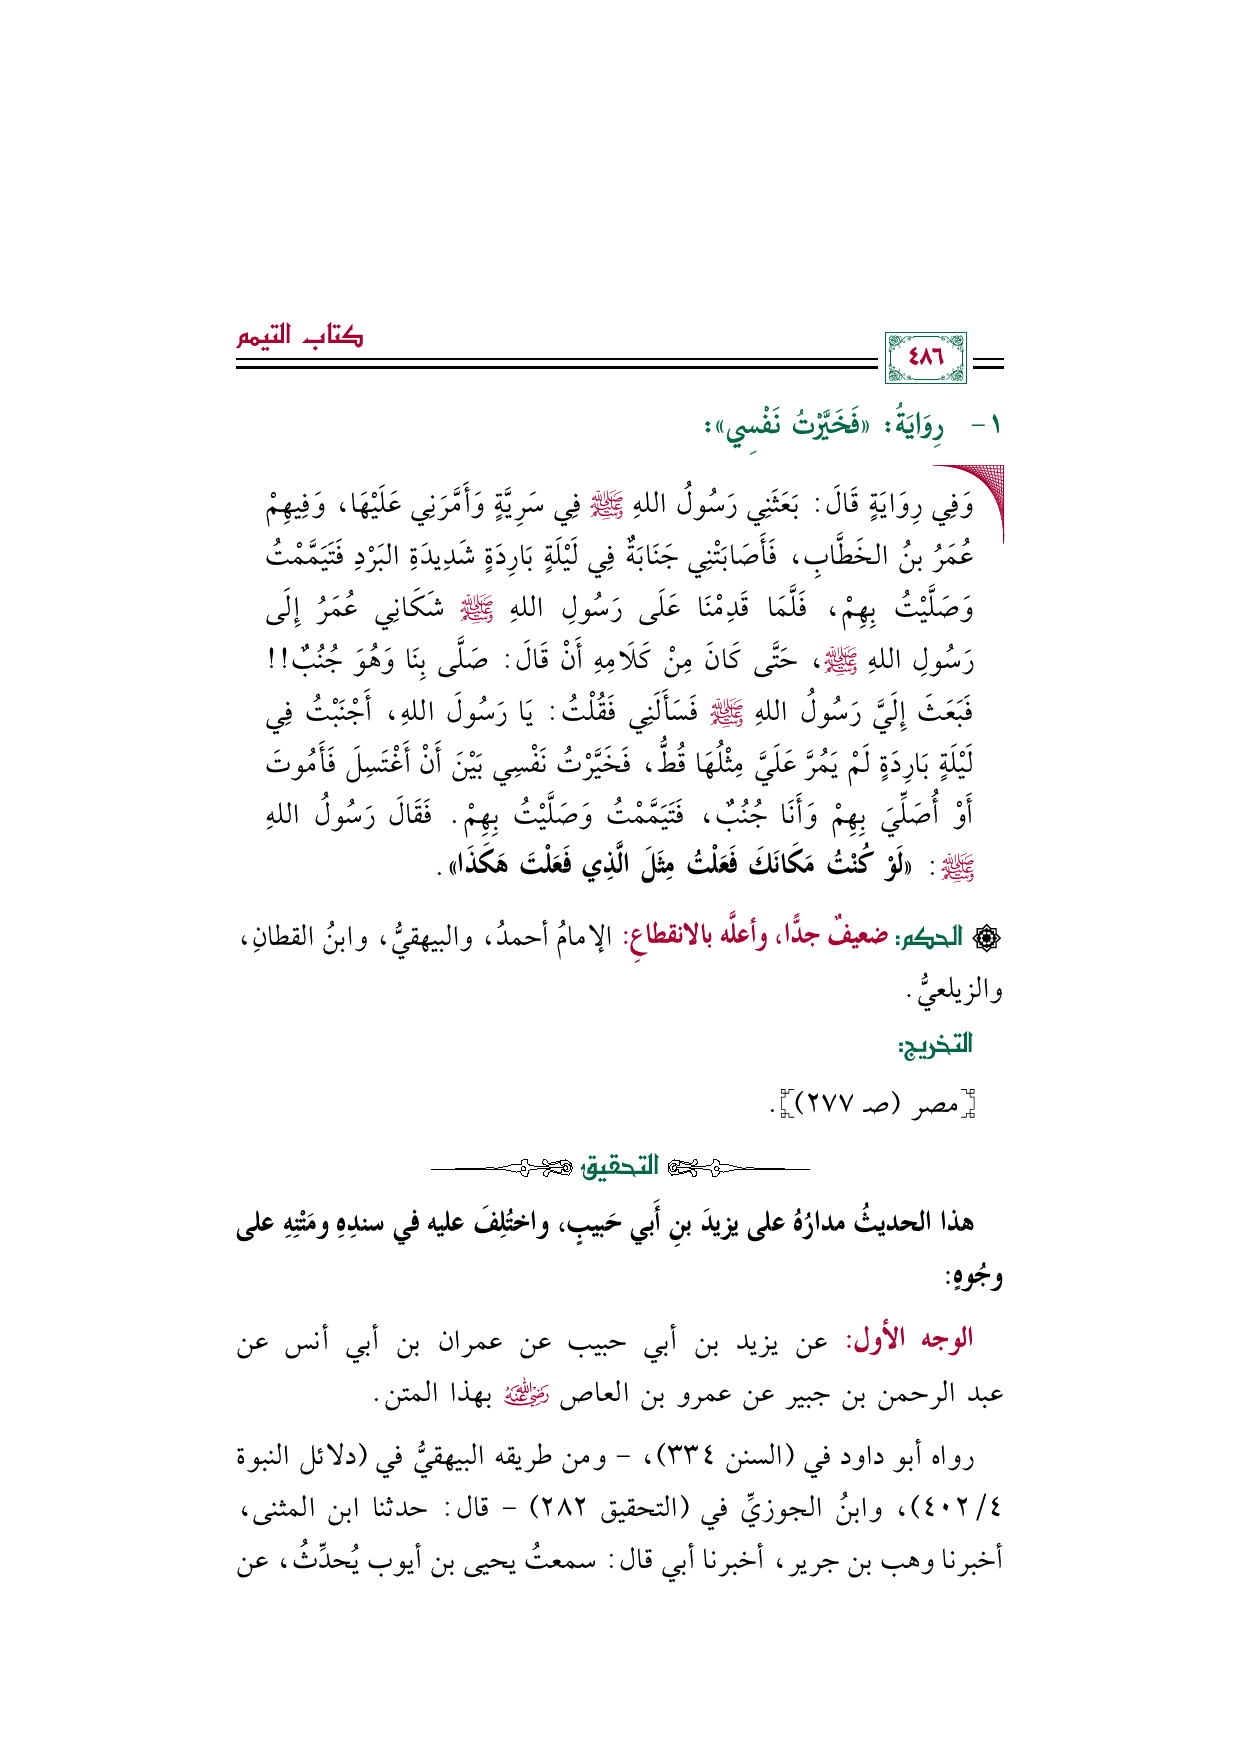 كتاب التيمم
٤٨٦
١- رِوَايَةُ: «فَخَيَّرْتُ نَفْسِي»:
وَفِي رِوَايَةٍ قَالَ: بَعَثَنِي رَسُولُ اللهِ ﷺ فِي سَرِيَّةٍ وَأَمَّرَنِي عَلَيْهَا، وَفِيهِمْ
عُمَرُ بنُ الخَطَّابِ، فَأَصَابَتْنِي جَنَابَةٌ فِي لَيْلَةٍ بَارِدَةٍ شَدِيدَةِ البَرْدِ فَتَيَمَّمْتُ
وَصَلَّيْتُ بِهِمْ، فَلَّمَا قَدِمْنَا عَلَى رَسُولِ اللهِ ﷺ شَكَانِي عُمَرُ إِلَى
رَسُولِ اللهِ ﷺ، حَتَّى كَانَ مِنْ كَلَامِهِ أَنْ قَالَ: صَلَّى بِنَا وَهُوَ جُنُبٌ!!
فَبَعَثَ إِلَيَّ رَسُولُ اللهِ ﷺ فَسَأَلَنِي فَقُلْتُ: يَا رَسُولَ اللهِ، أَجْنَبْتُ فِي
لَيْلَةٍ بَارِدَةٍ لَمْ يَمُرَّ عَلَيَّ مِثْلُهَا قُطُّ، فَخَيَّرْتُ نَفْسِي بَيْنَ أَنْ أَغْتَسِلَ فَأَمُوتَ
أَوْ أُصَلِّيَ بِهِمْ وَأَنَا جُنُبٌ، فَتَيَمَّمْتُ وَصَلَّيْتُ بِهِمْ. فَقَالَ رَسُولُ اللهِ
ﷺ: «لَوْ كُنْتُ مَكَانَكَ فَعَلْتُ مِثَلَ الَّذِي فَعَلْتَ هَكَذَا».
الحكم: ضعيفٌ جدًّا، وأعلَّه بالانقطاعِ: الإمامُ أحمدُ، والبيهقيُّ، وابنُ القطانِ،
والزيلعيُّ.
التخريج:
[مصر (صـ ٢٧٧)].
التحقيق
هذا الحديثُ مدارُهُ على يزيدَ بنِ أَبي حَبيبٍ، واختُلِفَ عليه في سندِهِ ومَتْنِهِ على
وجُوهٍ:
الوجه الأول: عن يزيد بن أبي حبيب عن عمران بن أبي أنس عن
عبد الرحمن بن جبير عن عمرو بن العاص رضي الله عنه بهذا المتن.
رواه أبو داود في (السنن ٣٣٤)، - ومن طريقه البيهقيُّ في (دلائل النبوة
٤/ ٤٠٢)، وابنُ الجوزيِّ في (التحقيق ٢٨٢) - قال: حدثنا ابن المثنى،
أخبرنا وهب بن جرير، أخبرنا أبي قال: سمعتُ يحيى بن أيوب يُحدِّثُ، عن